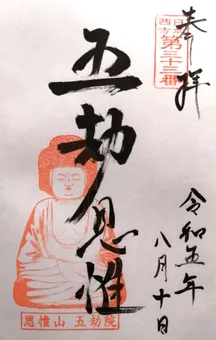 奉拝
西日本
方
第三十三番
五劫思惟
令和五年
八月十日
思惟山 五劫院